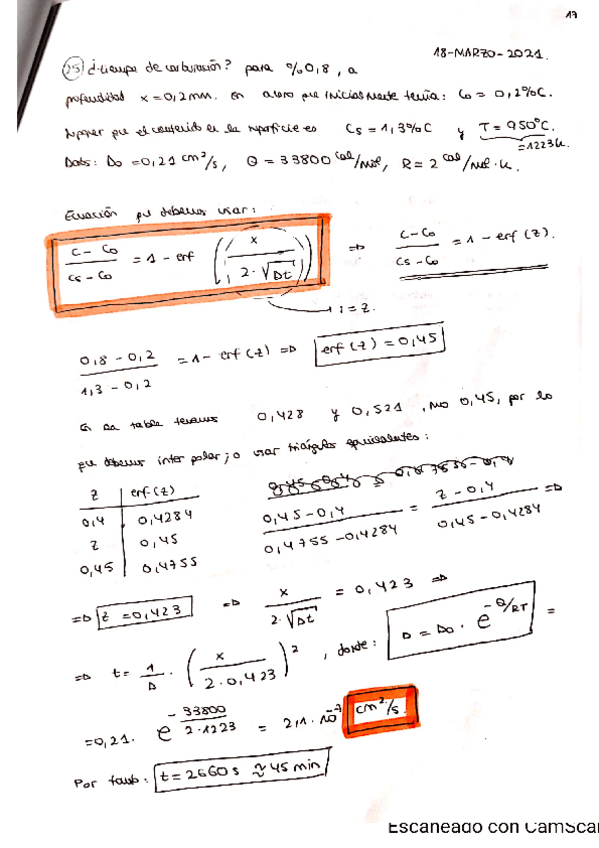 17
18-MARZO-2021.
25 ¿tiempo de carburación? para %0,8, a
profundidad x = 0,2mm. en acero que inicialmente tenía: C0 = 0,2%C.
Suponer que el contenido en la superficie es Cs = 1,3%C y T = 950°C.
=1223k.
Datos: D0 = 0,21 cm²/s, Q = 33800 cal/mol, R = 2 cal/mol·k.
Ecuación que debemos usar:
(C - C0)/(Cs - C0) = 1 - erf (x/(2·√Dt)) => (C - C0)/(Cs - C0) = 1 - erf(z).
i = z.
(0,8 - 0,2)/(1,3 - 0,2) = 1 - erf(z) => erf(z) = 0,45
En la tabla tenemos 0,428 y 0,521, no 0,45, por lo
que debemos interpolar; o usar triángulos equivalentes:
z | erf(z)
0,4 | 0,4284
z | 0,45
0,45 | 0,4755
(0,45 - 0,4)/(0,4755 - 0,4284) = (z - 0,4)/(0,45 - 0,4284) =>
=> z = 0,423 => x/(2·√Dt) = 0,423 =>
=> t = 1/D · (x/(2·0,423))², donde: D = D0 · e^(-Q/RT) =
= 0,21 · e^(-33800/(2·1223)) = 2,1 · 10^-7 cm²/s.
Por tanto: t = 2660 s ≈ 45 min
Escaneado con CamScan